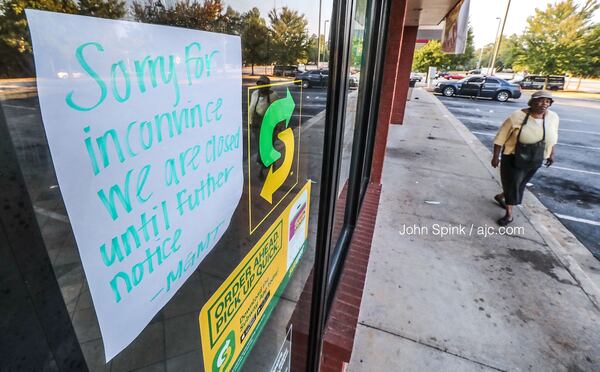 Sorry for
inconvince
we are closed
until Futher
notice
-MGMT
ORDER AHEAD
PICK UP QUICK!
John Spink / ajc.com